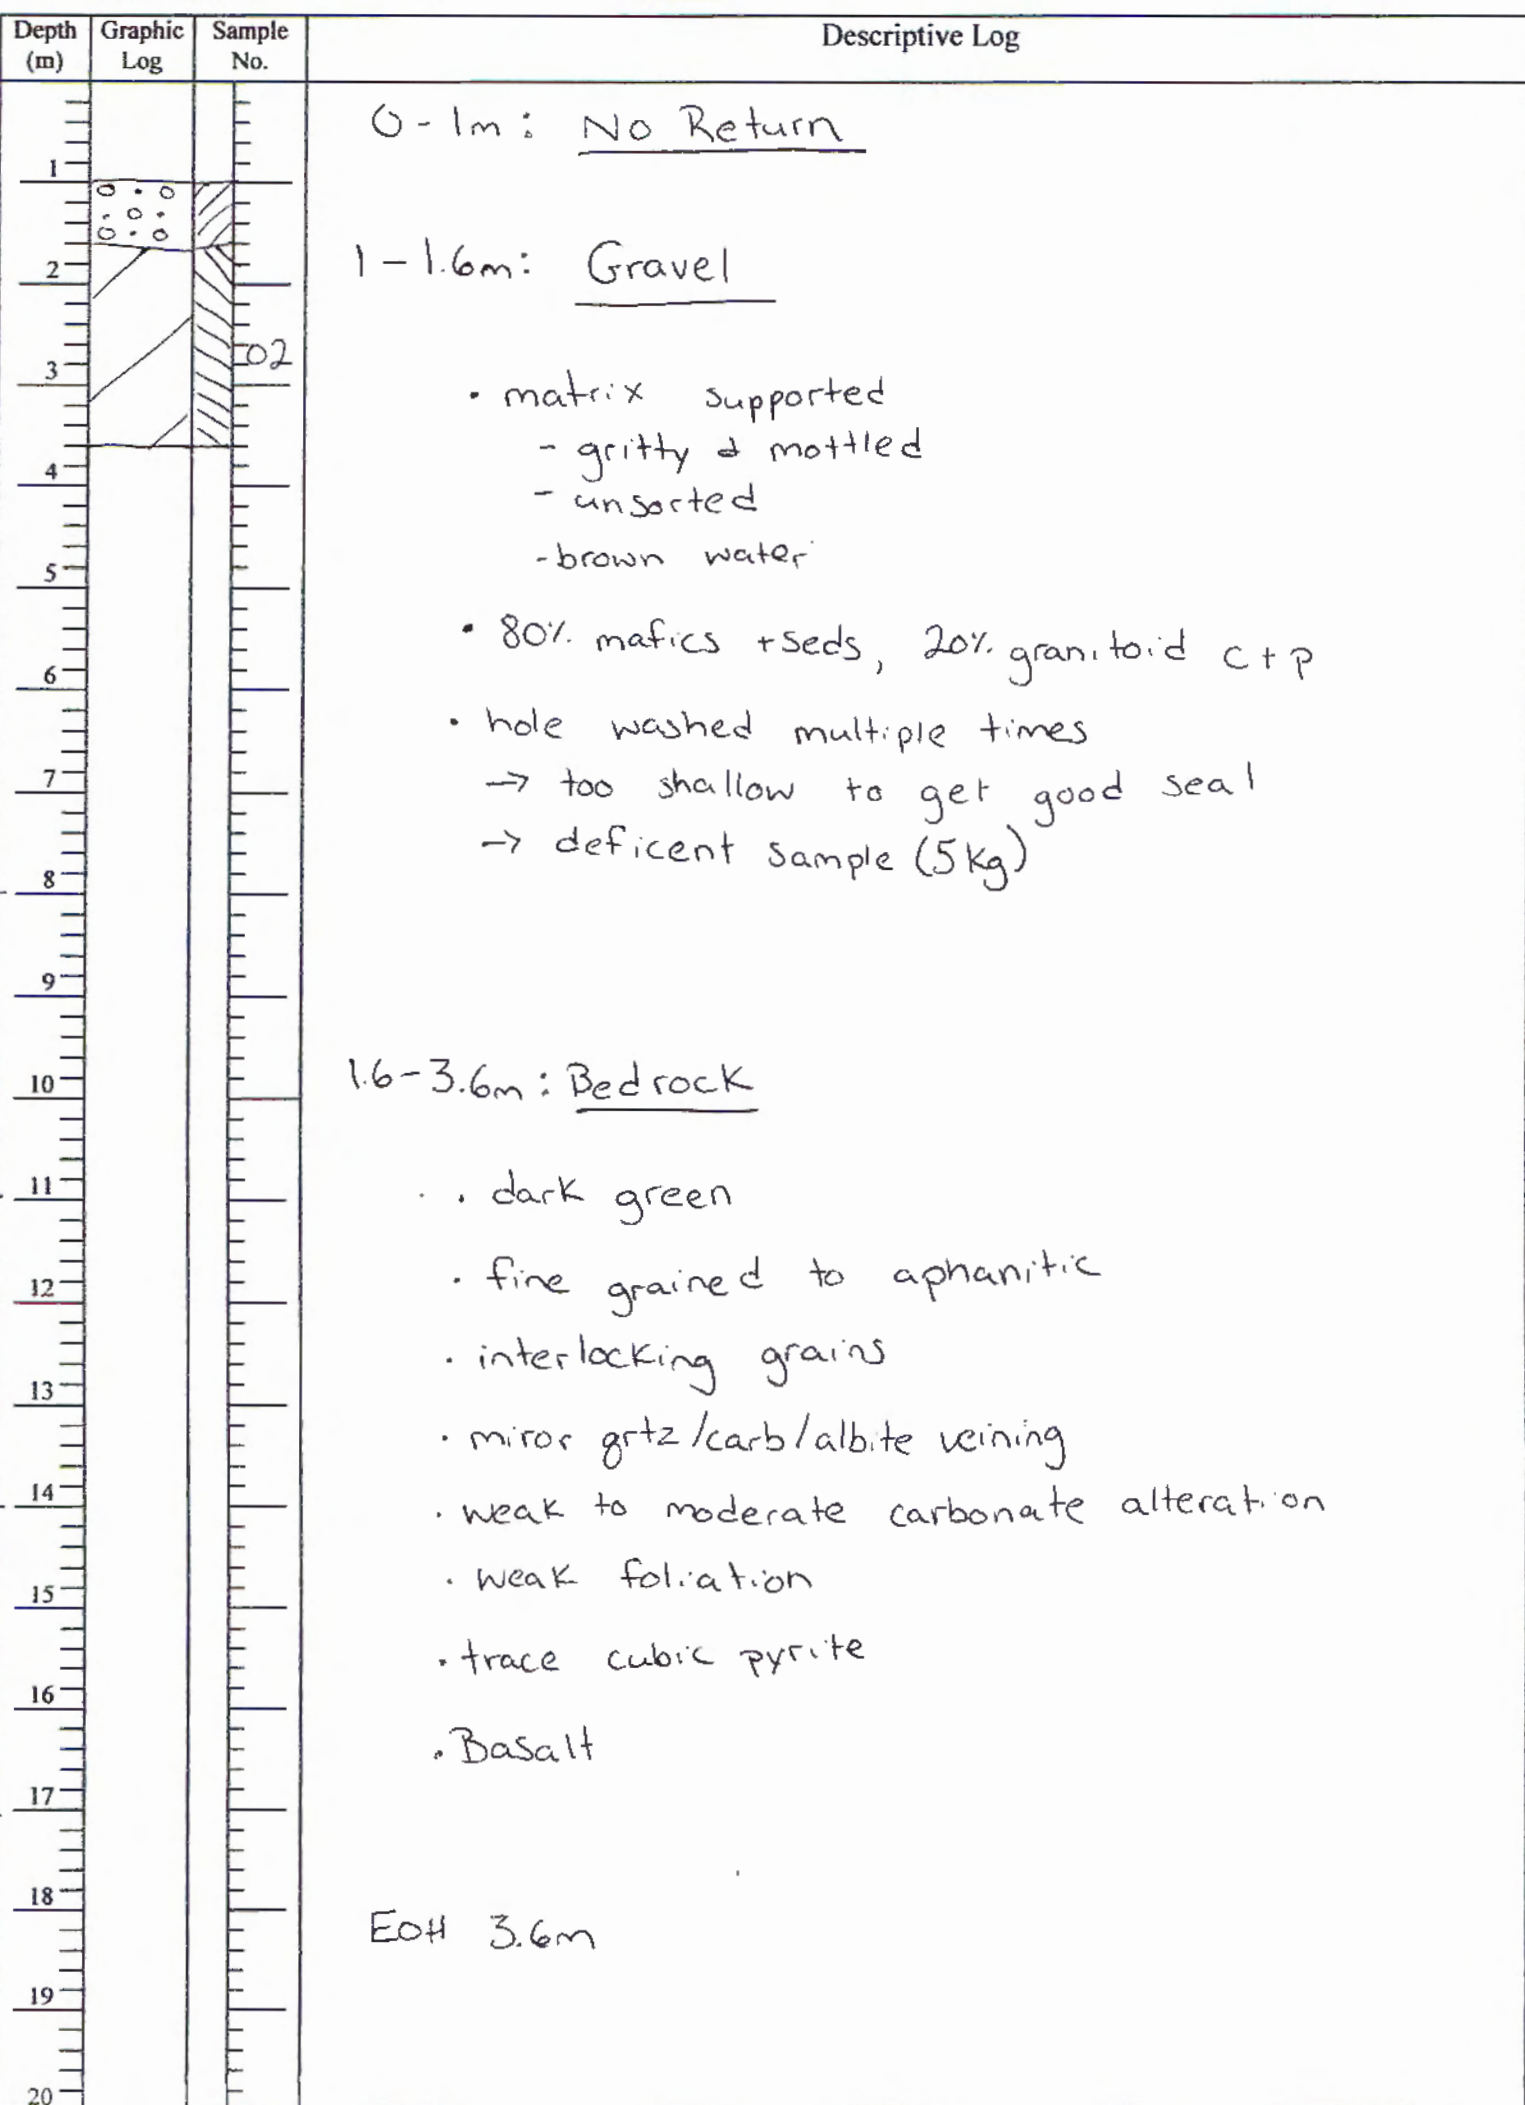 Depth (m) Graphic Log Sample No. Descriptive Log
0-1m: No Return
1
1-1.6m: Gravel
2
02
3
• matrix supported
- gritty & mottled
4
- unsorted
- brown water
5
• 80% mafics + seds, 20% granitoid c + p
6
• hole washed multiple times
7
→ too shallow to get good seal
→ deficent sample (5kg)
8
9
10
1.6-3.6m: Bedrock
11
• dark green
12
• fine grained to aphanitic
• interlocking grains
13
• miror qrtz/carb/albite veining
14
• weak to moderate carbonate alteration
• weak foliation
15
• trace cubic pyrite
16
• Basalt
17
18
EOH 3.6m
19
20